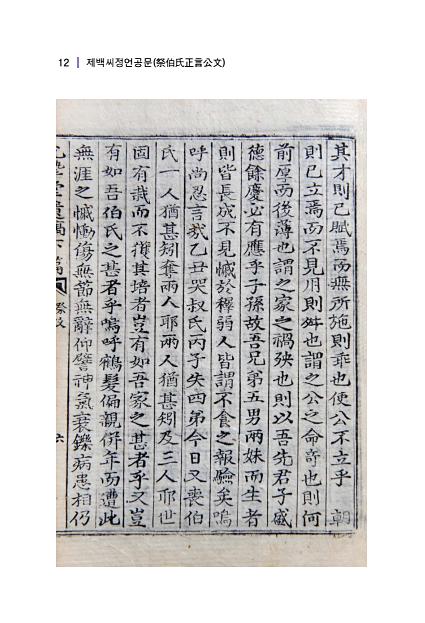 12 | 제백씨정언공문(祭伯氏正言公文)
其才則已賦焉而無所施則乖也使公不立乎 朝
則已立焉而不見用則舛也謂之公之命奇也則何
前厚而後薄也謂之家之禍殃也則以吾先君子盛
德餘慶必有應乎子孫故吾兄弟五男兩妹而生者
則皆長成不見慽於稺弱人皆謂不食之報驗矣嗚
呼尚忍言哉乙丑哭叔氏丙子失四弟今日又喪伯
氏一人猶甚矧奪兩人耶兩人猶甚矧及三人耶世
固有栽而不獲其培者豈有如吾家之甚者乎又豈
有如吾伯氏之甚者乎嗚呼鶴髮偏親倂年而遭此
無涯之慽慟傷無節無辭仰譬神氣衰鑠病患相仍
遺稿下篇 祭文 六